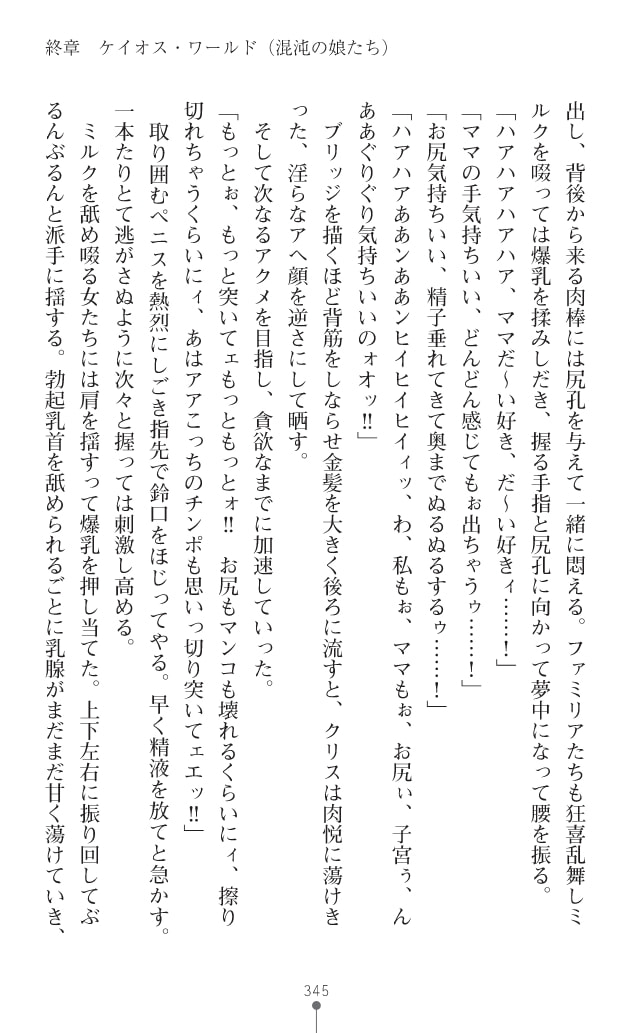 終章　ケイオス・ワールド（混沌の娘たち）
出し、背後から来る肉棒には尻孔を与えて一緒に悶える。ファミリアたちも狂喜乱舞しミ
ルクを啜っては爆乳を揉みしだき、握る手指と尻孔に向かって夢中になって腰を振る。
「ハアハアハアハア、ママだ～い好き、だ～い好きィ……！」
「ママの手気持ちいい、どんどん感じてもぉ出ちゃうゥ……！」
「お尻気持ちいい、精子垂れてきて奥までぬるぬるするゥ……！」
「ハアハアああンああンヒイヒイヒイィッ、わ、私もぉ、ママもぉ、お尻ぃ、子宮ぅ、ん
ああぐりぐり気持ちいいのォオッ!!」
ブリッジを描くほど背筋をしならせ金髪を大きく後ろに流すと、クリスは肉悦に蕩けき
った、淫らなアヘ顔を逆さにして晒す。
そして次なるアクメを目指し、貪欲なまでに加速していった。
「もっとぉ、もっと突いてェもっともっとォ!!　お尻もマンコも壊れるくらいにィ、擦り
切れちゃうくらいにィ、あはアアこっちのチンポも思いっ切り突いてェエッ!!」
取り囲むペニスを熱烈にしごき指先で鈴口をほじってやる。早く精液を放てと急かす。
一本たりとて逃がさぬように次々と握っては刺激し高める。
ミルクを舐め啜る女たちには肩を揺すって爆乳を押し当てた。上下左右に振り回してぶ
るんぶるんと派手に揺する。勃起乳首を舐められるごとに乳腺がまだまだ甘く蕩けていき、
345